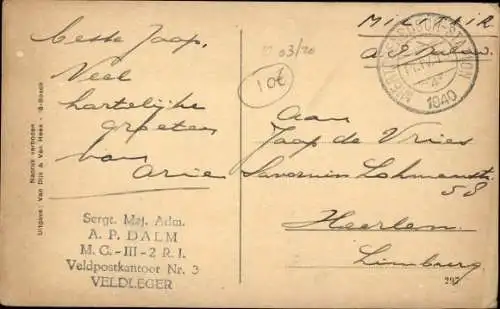 Beste Jaap,
Veel
hartelijke
groeten
van
Arie
Sergt. Maj. Adm.
A. P. DALM
M. C. - III - 2 R. I.
Veldpostkantoor Nr. 3
VELDLEGER
Nadruk verboden
Uitgave: Van Dijk & Van Hees - 's-Bosch
03/20
10€
MILITAIR
1940
Aan
Jaap de Vries
Savornin Lohmanstr
58
Heerlen
Limburg